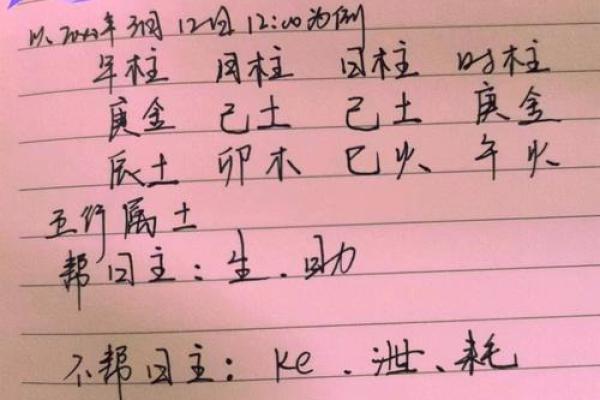 以2000年3月12日12:00为例
年柱 月柱 日柱 时柱
庚金 己土 己土 庚金
辰土 卯木 巳火 午火
五行属土
帮日主：生、助
不帮日主：Ke、泄、耗